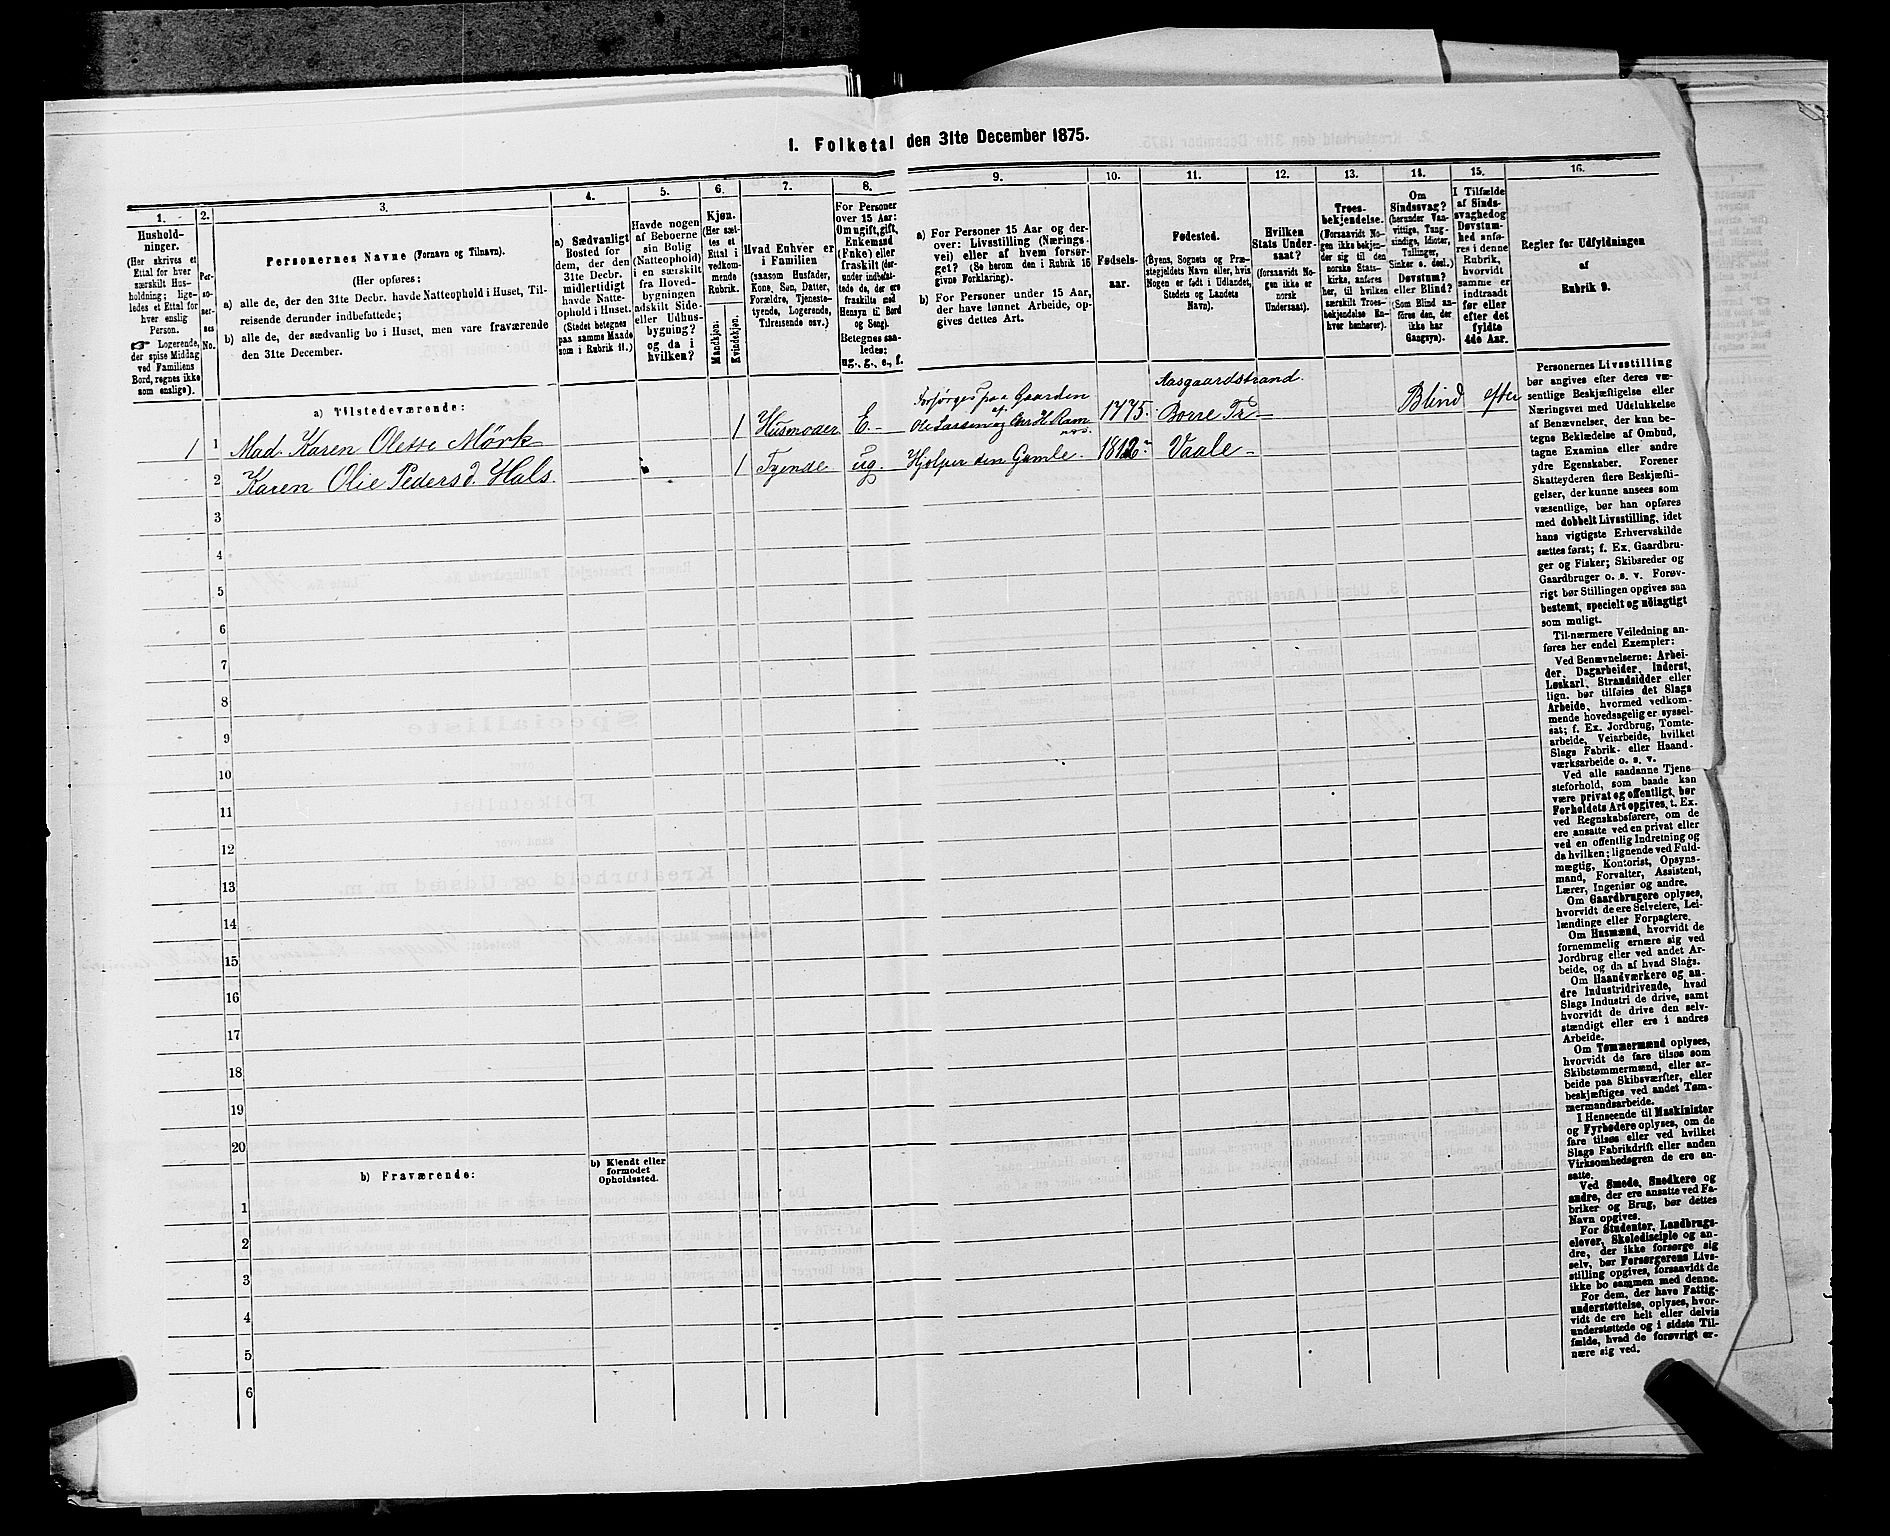 1. Folketal den 31te December 1875.
1.
Hushold-
ninger.
(Her skrives et
Ettal for hver
særskilt Hus-
holdning; lige-
ledes et Ettal for
hver enslig
Person.
☞ Logerende,
der spise Middag
ved Familiens
Bord, regnes ikke
som enslige).
2.
Per-
so-
ner-
nes
No.
3.
Personernes Navne (Fornavn og Tilnavn).
(Her opføres:
a) alle de, der den 31te Decbr. havde Natteophold i Huset, Til-
reisende derunder indbefattede;
b) alle de, der sædvanlig bo i Huset, men vare fraværende
den 31te December.
4.
a) Sædvanligt
Bosted for
dem, der den
31te Decbr.
midlertidigt
havde Natte-
ophold i Huset.
(Stedet betegnes
paa samme Maade
som i Rubrik 11.)
5.
Havde nogen
af Beboerne
sin Bolig
(Natteophold)
i en særskilt
fra Hoved-
bygningen
adskilt Side-
eller Udhus-
bygning?
og da i
hvilken?
6.
Kjøn.
(Her sæt-
tes et
Ettal i
vedkom-
mende
Rubrik.
Mandkjøn.
Kvindekjøn.
7.
Hvad Enhver er
i Familien
(saasom Husfader,
Kone, Søn, Datter,
Forældre, Tjeneste-
tyende, Logerende,
Tilreisende osv.)
8.
For Personer
over 15 Aar:
Om ugift, gift,
Enkemand
(Enke) eller
fraskilt (der-
under indbefat-
tede de, der ere
fraskilte med
Hensyn til Bord
og Seng).
Betegnes saa-
ledes:
ug., g., e., f.
9.
a) For Personer 15 Aar og der-
over: Livsstilling (Nærings-
vei) eller af hvem forsør-
get? (Se herom den i Rubrik 16
givne Forklaring).
b) For Personer under 15 Aar,
der have lønnet Arbeide, op-
gives dettes Art.
10.
Fødsels-
aar.
11.
Fødested.
(Byens, Sognets og Præ-
stegjeldets Navn eller, hvis
Nogen er født i Udlandet,
Stedets og Landets
Navn).
12.
Hvilken
Stats Under-
saat?
(forsaavidt No-
gen ikke er
norsk
Undersaat).
13.
Troes-
bekjendelse.
(Forsaavidt No-
gen ikke bekjen-
der sig til den
norske Stats-
kirke, anføres
her, til hvilken
særskilt Troes-
bekjendelse En-
hver henhører).
14.
Om
Sindssvag?
(herunder Van-
vittige, Tung-
sindige, Idioter,
Tullinger,
Sinker o. desl.)
Døvstum?
eller Blind?
(Som Blind an-
føres den, der
ikke har
Gangsyn).
15.
I Tilfælde
af Sinds-
svaghed og
Døvstum-
hed anfø-
res i denne
Rubrik,
hvorvidt
samme er
indtraadt
før eller
efter det
fyldte
4de Aar.
16.
Regler for Udfyldningen
af
Rubrik 9.
a) Tilstedeværende:
Aasgaardstrand.
Forsørges paa Gaarden
af
1 1 Mad. Karen Olette Mörk 1 Husmoder E. Ole Larsen og Chr H. Ram 1775. Borre Blind efter
2 Karen Olie Pedersd. Hals 1 Tyende ug. Hjelper den Gamle. 1812 Vaale
3
4
5
6
7
8
9
10
11
12
13
14
15
16
17
18
19
20
b) Fraværende:
b) Kjendt eller
formodet
Opholdssted.
1
2
3
4
5
6
Personernes Livsstilling
bør angives efter deres væ-
sentlige Beskjæftigelse eller
Næringsvei med Udelukkelse
af Benævnelser, der kun be-
tegne Beklædelse af Ombud,
tagne Examina eller andre
ydre Egenskaber. Forener
Skatteyderen flere Beskjæfti-
gelser, der kunne ansees som
væsentlige, bør han opføres
med dobbelt Livsstilling, idet
hans vigtigste Erhvervskilde
sættes først; f. Ex. Gaardbru-
ger og Fisker; Skibsreder og
Gaardbruger o. s. v. Forøv-
rigt bør Stillingen opgives saa
bestemt, specielt og nöiagtigt
som muligt.
Til nærmere Veiledning an-
føres her endel Exempler:
Ved Benævnelserne: Arbei-
der, Dagarbeider, Inderst,
Løskarl, Strandsidder eller
lign. bør tilføies det Slags
Arbeide, hvormed vedkom-
mende hovedsagelig er syssel-
sat; f. Ex. Jordbrug, Tomte-
arbeide, Veiarbeide, hvilket
Slags Fabrik- eller Haand-
værksarbeide o. s. v.
Ved alle saadanne Tjene
steforhold, som baade kan
være privat og offentligt, bør
Forholdets Art opgives, t. Ex.
ved Regnskabsførere, om de
ere ansatte ved en privat eller
ved en offentlig Indretning og
da hvilken; lignende ved Fuld-
mægtig, Kontorist, Opsyns-
mand, Forvalter, Assistent,
Lærer, Ingeniør og andre.
Om Gaardbrugere oplyses,
hvorvidt de ere Selveiere, Lei-
lændinge eller Forpagtere.
Om Husmænd, hvorvidt de
fornemmelig ernære sig ved
Jordbrug eller ved andet Ar-
beide, og da af hvad Slags.
Om Haandværkere og an-
dre Industridrivende, hvad
Slags Industri de drive, samt
hvorvidt de drive den selv-
stændigt eller ere i andres
Arbeide.
Om Tømmermænd oplyses,
hvorvidt de fare tilsøs som
Skibstømmermænd, eller ar-
beide paa Skibsværfter, eller
beskjæftiges ved andet Tøm-
mermandsarbeide.
I Henseende til Maskinister
og Fyrbødere oplyses, om de
fare tilsøs eller ved hvilket
Slags Fabrikdrift eller anden
Virksomhedsgren de ere an-
satte.
Ved Smede, Snedkere og
andre, der ere ansatte ved Fa-
briker og Brug, bør dettes
Navn opgives.
For Studenter, Landbrugs-
elever, Skoledisciple og an-
dre, der ikke forsørge sig
selv, bør Forsørgerens Livs-
stilling opgives, forsaavidt de
ikke bo sammen med denne.
For dem, der have Fattig-
understøttelse, oplyses, hvor-
vidt de ere helt eller delvis
understøttede og i sidste Til-
fælde, hvad de forøvrigt er-
nære sig ved.